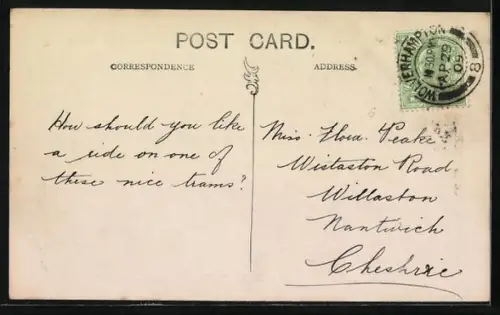 POST CARD.
CORRESPONDENCE
ADDRESS.
WOLVERHAMPTON
AP 29
09
8
How should you like
a ride on one of
these nice trams?
Miss. Flora. Peake
Wistaston Road
Willaston
Nantwich
Cheshire